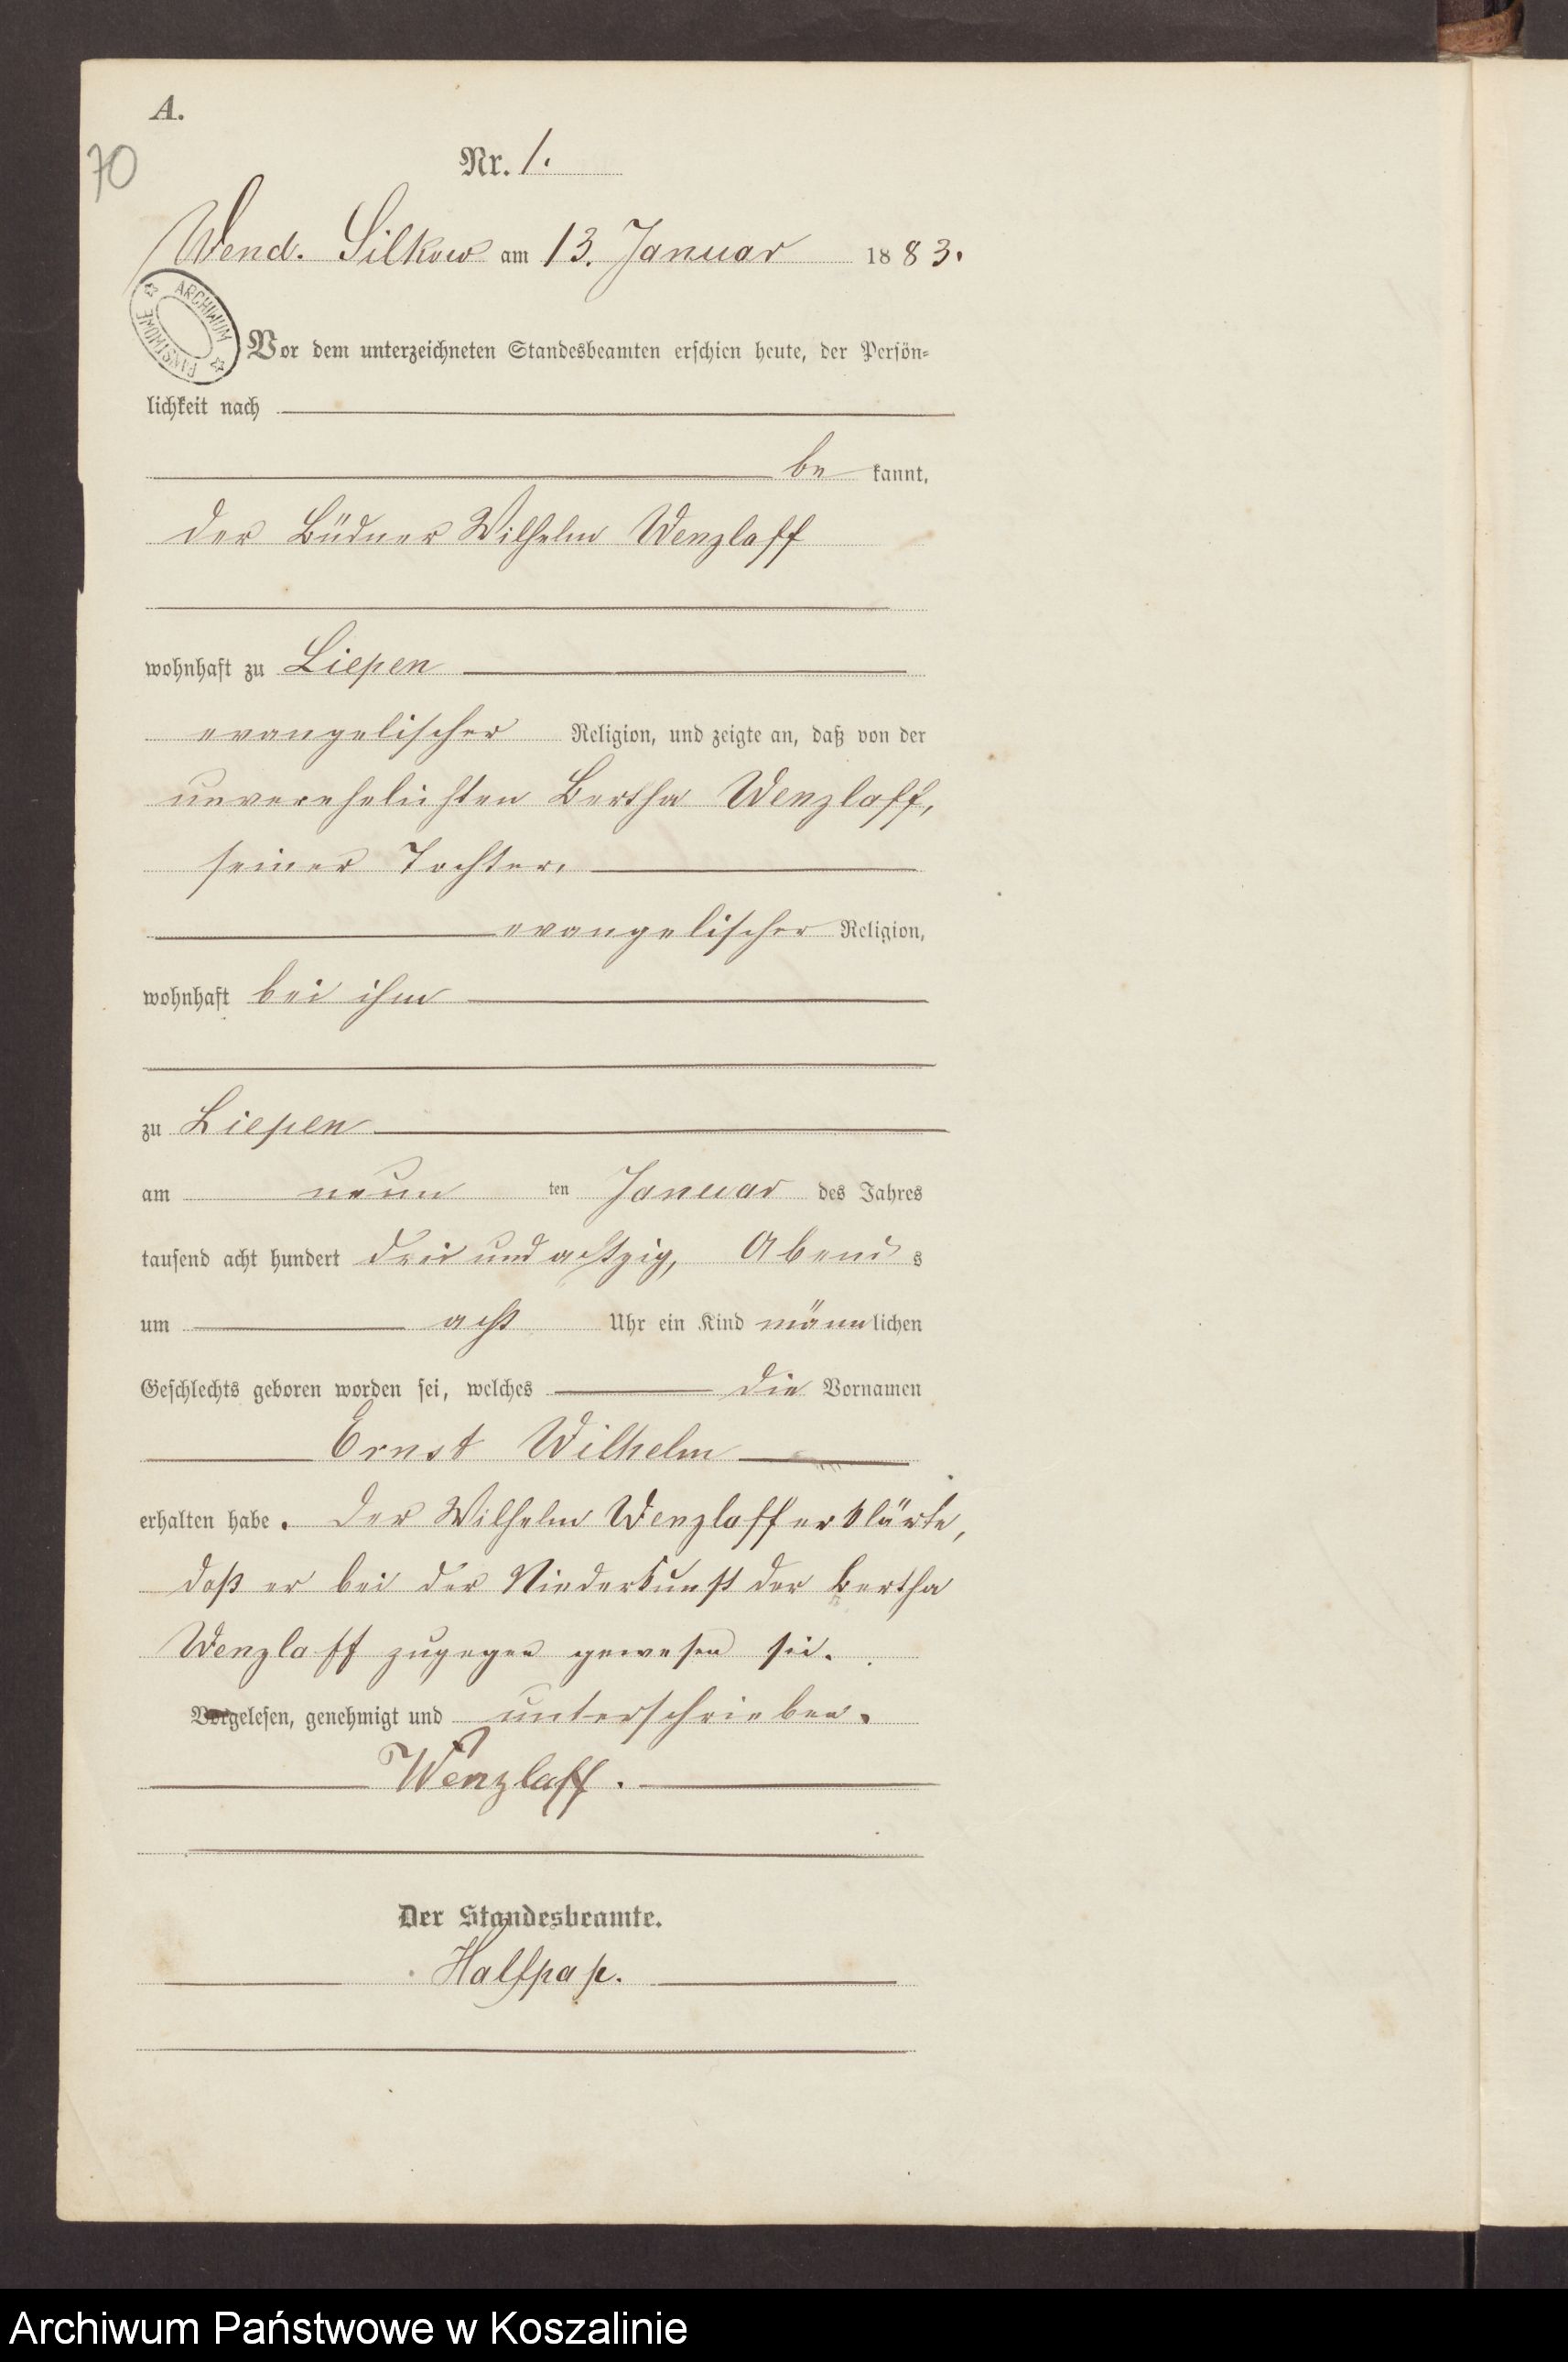 A.
70
Nr. 1.
Wend. Silkow am 13. Januar 1883.
ARCHIWUM PAŃSTWOWE
Vor dem unterzeichneten Standesbeamten erschien heute, der Persön-
lichkeit nach
be kannt,
der Büdner Wilhelm Wenzlaff
wohnhaft zu Liepen
evangelischer Religion, und zeigte an, daß von der
unverehelichten Bertha Wenzlaff,
seiner Tochter,
evangelischer Religion,
wohnhaft bei ihm
zu Liepen
am neun ten Januar des Jahres
tausend acht hundert drei und achtzig, Abend s
um acht Uhr ein Kind männlichen
Geschlechts geboren worden sei, welches die Vornamen
Ernst Wilhelm
erhalten habe. Der Wilhelm Wenzlaff erklärte,
daß er bei der Niederkunft der Bertha
Wenzlaff zugegen gewesen sei.
Vorgelesen, genehmigt und unterschrieben.
Wenzlaff.
Der Standesbeamte.
Halfpap.
Archiwum Państwowe w Koszalinie